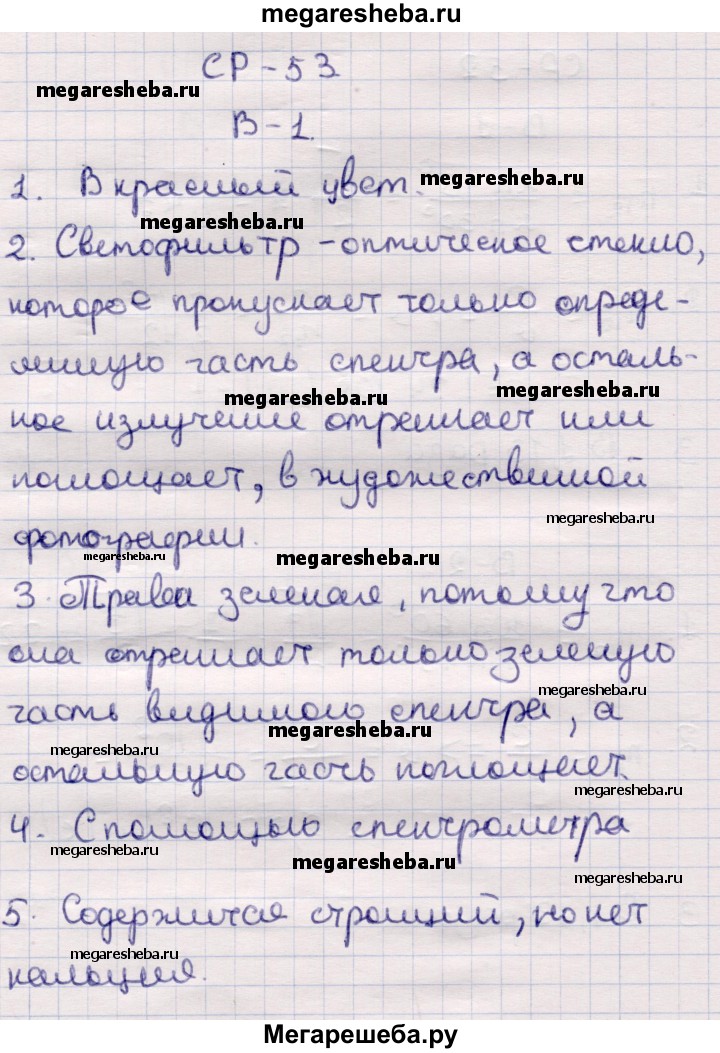 megaresheba.ru
СР-53
megaresheba.ru
В-1.
1. В красный цвет.
megaresheba.ru
megaresheba.ru
2. Светофильтр - оптическое стекло,
которое пропускает только опреде-
лнную часть спектра, а осталь-
megaresheba.ru
megaresheba.ru
ное излучение отрешает или
помощает, в художественной
megaresheba.ru
фотографии.
megaresheba.ru
megaresheba.ru
3. Трава зеленая, потому что
она отрешает только зеленую
megaresheba.ru
часть видимого спектра, а
megaresheba.ru
megaresheba.ru
остальную часть поглощает.
megaresheba.ru
4. С помощью спектрометра
megaresheba.ru
megaresheba.ru
megaresheba.ru
5. Содержится стронций, но нет
megaresheba.ru
кальция.
Мегарешеба.ру